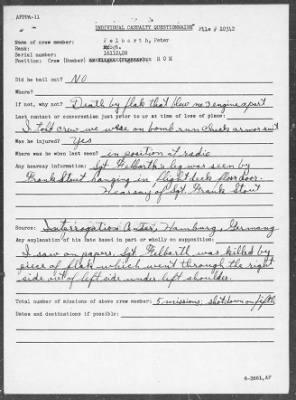 AFPPA-11
INDIVIDUAL CASUALTY QUESTIONNAIRE File # 10342
Name of crew member: Felborth, Peter
Rank: Sgt.
Serial number:
Position: Crew (Bomber) R O M
Did he bail out? NO
Where?
If not, why not? Death by flak that blew no engine apart
Last contact or conversation just prior to or at time of loss of plane:
I told crew we were on bomb run check armor suit
Was he injured? Yes
Where was he when last seen? in position at radio
Any hearsay information: Sgt Felborth's leg was seen by
Frank Stout hanging in flight deck floor door.
Hearsay of Sgt. Frank Stout
Source: Interrogation Center, Hamburg, Germany
Any explanation of his fate based in part or wholly on supposition:
I saw on papers, Sgt Felborth was killed by
piece of flak which went through the right
side out of left side under left shoulder.
Total number of missions of above crew member: 5 missions; shot down on fifth
Dates and destinations if possible:
6-3861,AF